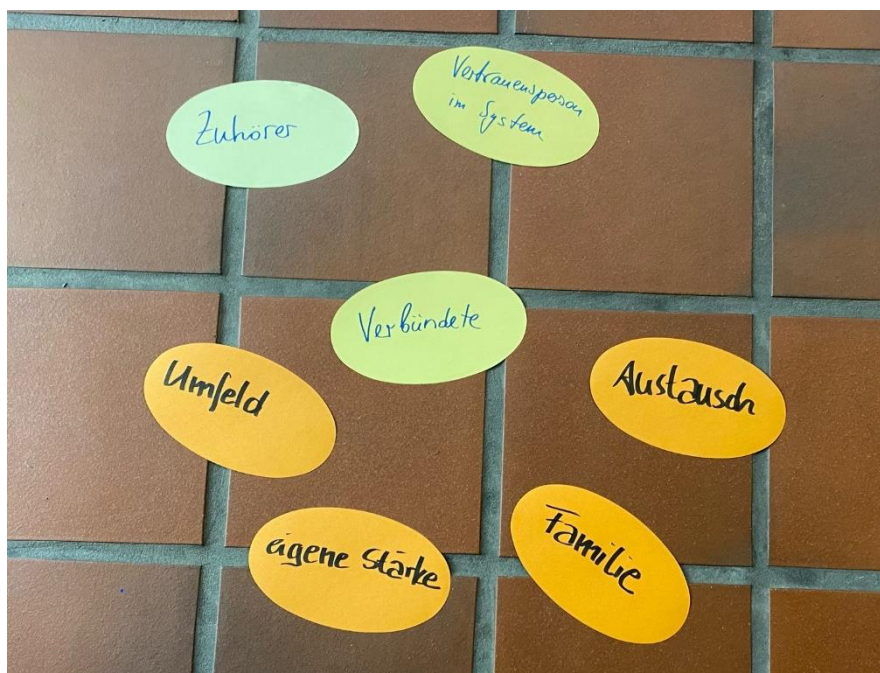 Zuhörer
Vertrauensperson
im System
Verbündete
Umfeld
Austausch
eigene Stärke
Familie